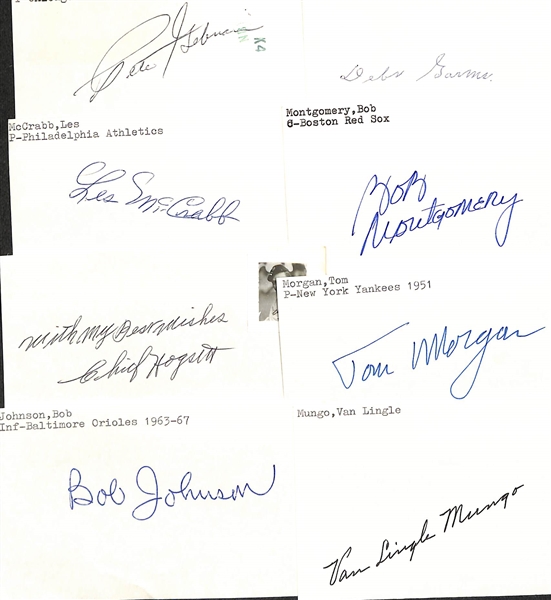 Pete
K4
McCrabb,Les
P-Philadelphia Athletics
Les McCrabb
With my Best wishes
Chief Hogsett
Johnson,Bob
Inf-Baltimore Orioles 1963-67
Bob Johnson
Debs Garms
Montgomery,Bob
C-Boston Red Sox
Bob
Montgomery
Morgan,Tom
P-New York Yankees 1951
Tom Morgan
Mungo,Van Lingle
Van Lingle Mungo